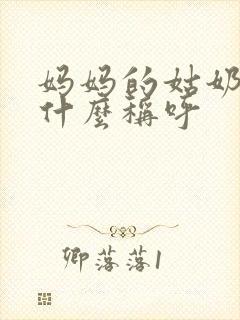 妈妈的姑奶
什麼稱呼
卿落落1